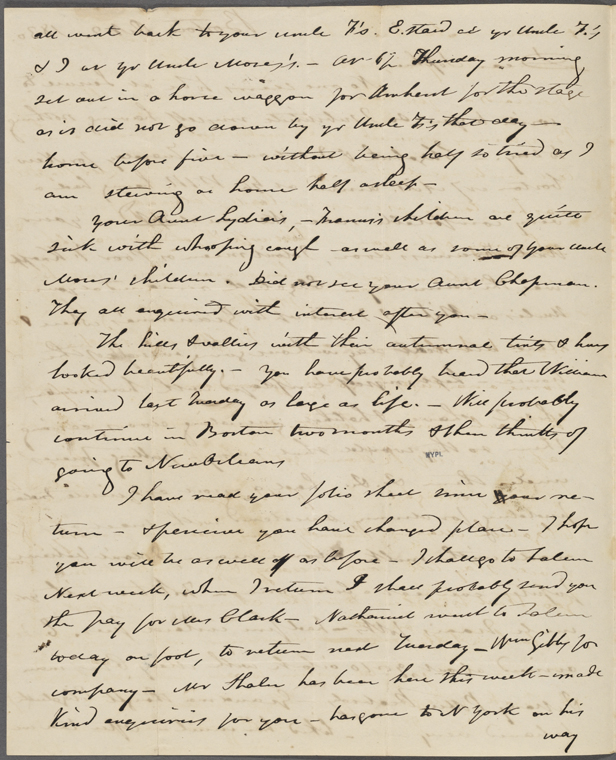 all went back to your uncle F's. E. staid at yr Uncle F.'s
& I at yr Uncle Moses's. — at Thursday morning
set out in a horse waggon for Amherst for the stage
as is did not go down by yr Uncle F.'s that day —
home before five — without being half so tired as I
am stewing at home half asleep —
your Aunt Lydia's, — Francis's children are quite
sick with whooping cough as well as some of your Uncle
Moses' children. Did not see your Aunt Chapman.
They all enquired with interest after you —
The hills & vallies with their autumnal tints & hues
looked beautifully. — You have probably heard that William
arrived last Tuesday as large as life. — Will probably
continue in Boston two months & then thinks of
going to New Orleans
NYPL
I have read your folio sheet since your re-
turn — & perceive you have changed place — I hope
you will be as well off as before — I shall go to Salem
Next week, when I return I shall probably send you
the pay for Mrs Clark — Nathaniel went to Salem
today on foot, to return next Tuesday — Wm Gibbs for
company — Mr Thaler has been here this week — made
kind enquiries for you — has gone to N York on his
way